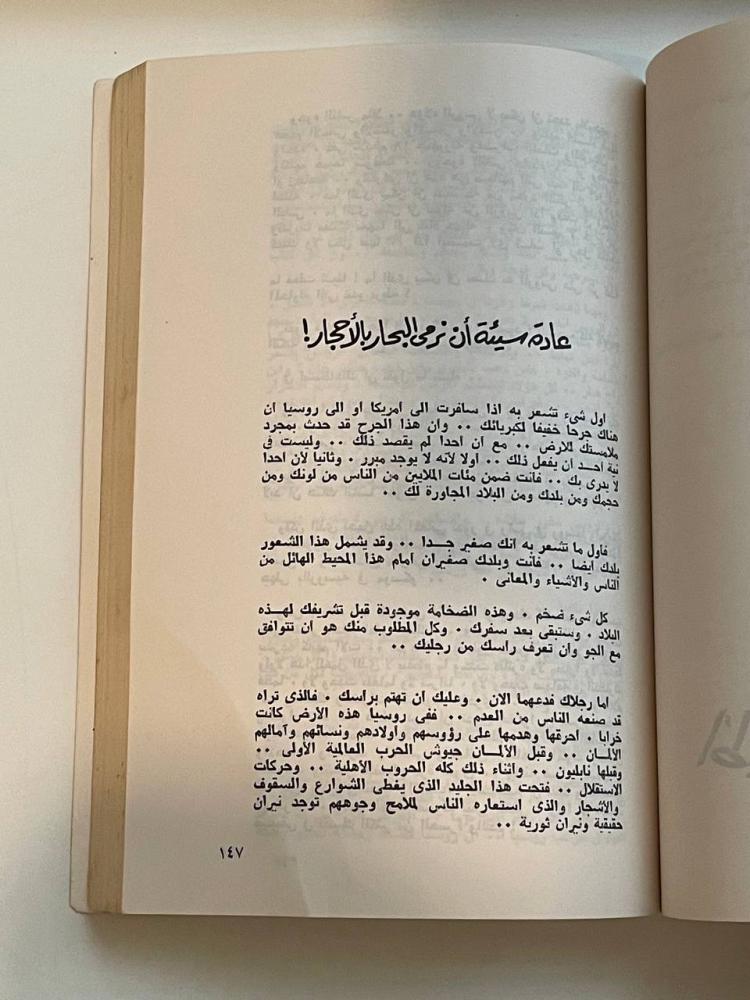 عادة سيئة أن نرمى البحار بالأحجار !
اول شىء تشعر به اذا سافرت الى امريكا او الى روسيا ان
هناك جرحا خفيفا لكبريائك .. وان هذا الجرح قد حدث بمجرد
ملامستك للارض .. مع ان احدا لم يقصد ذلك .. وليست فى
نية احـد ان يفعل ذلك .. اولا لأنه لا يوجد مبرر . وثانيا لأن احدا
لا يدرى بك .. فانت ضمن مئات الملايين من الناس من لونك ومن
حجمك ومن بلدك ومن البلاد المجاورة لك ..
فأول ما تشعر به انك صغير جـدا .. وقد يشمل هذا الشعور
بلدك ايضا .. فانت وبلدك صغيران أمام هذا المحيط الهائل من
الناس والأشياء والمعانى .
كل شىء ضخم . وهذه الضخامة موجودة قبل تشريفك لهـذه
البلاد . وستبقى بعد سفرك . وكل المطلوب منك هو ان تتوافق
مع الجو وان تعرف راسك من رجليك ..
اما رجلاك فدعهما الان . وعليك ان تهتم براسك . فالذى تراه
قد صنعه الناس من العدم .. ففى روسيا هذه الأرض كانت
خرابا . احرقها وهدمها على رؤوسهم واولادهم ونسائهم وآمالهم
الألمـان .. وقبل الألمـان جيوش الحرب العالمية الأولى ..
وقبلها نابليون .. واثناء ذلك كله الحروب الأهلية .. وحركات
الاستقلال .. فتحت هذا الجليد الذى يغطى الشوارع والسقوف
والأشجار والذى استعاره الناس لملامح وجوههم توجد نيران
حقيقية ونيران ثورية ..
١٤٧